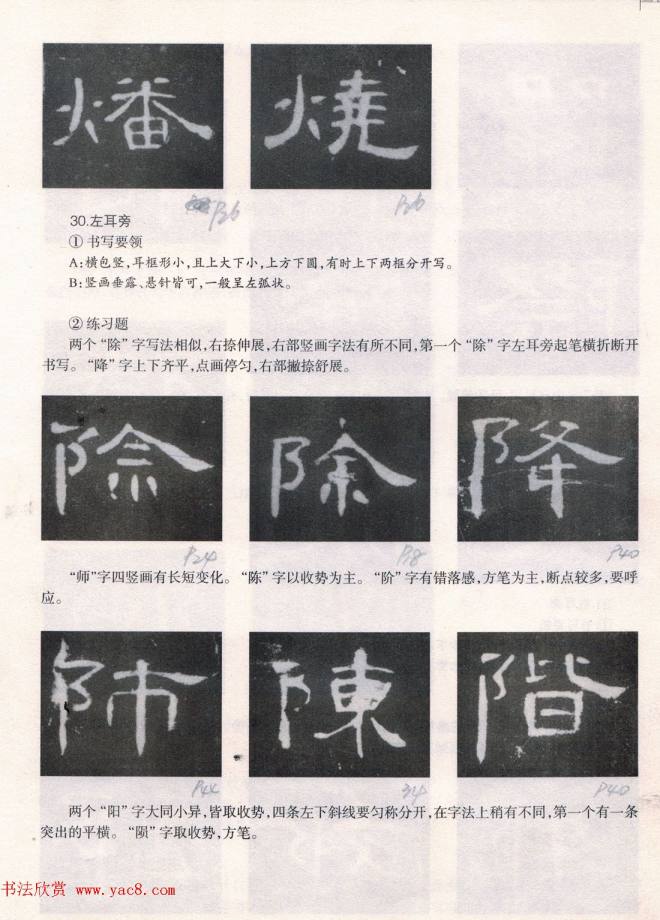 燔 燒
P26 P26
30.左耳旁
① 书写要领
A:横包竖,耳框形小,且上大下小,上方下圆,有时上下两框分开写。
B:竖画垂露、悬针皆可,一般呈左弧状。
② 练习题
两个“除”字写法相似,右捺伸展,右部竖画字法有所不同,第一个“除”字左耳旁起笔横折断开
书写。“降”字上下齐平,点画停匀,右部撇捺舒展。
除 除 降
P24 P18 P40
“师”字四竖画有长短变化。“陈”字以收势为主。“阶”字有错落感,方笔为主,断点较多,要呼
应。
师 陳 階
P44 34 P40
两个“阳”字大同小异,皆取收势,四条左下斜线要匀称分开,在字法上稍有不同,第一个有一条
突出的平横。“陨”字取收势,方笔。
书法欣赏 www.yac8.com